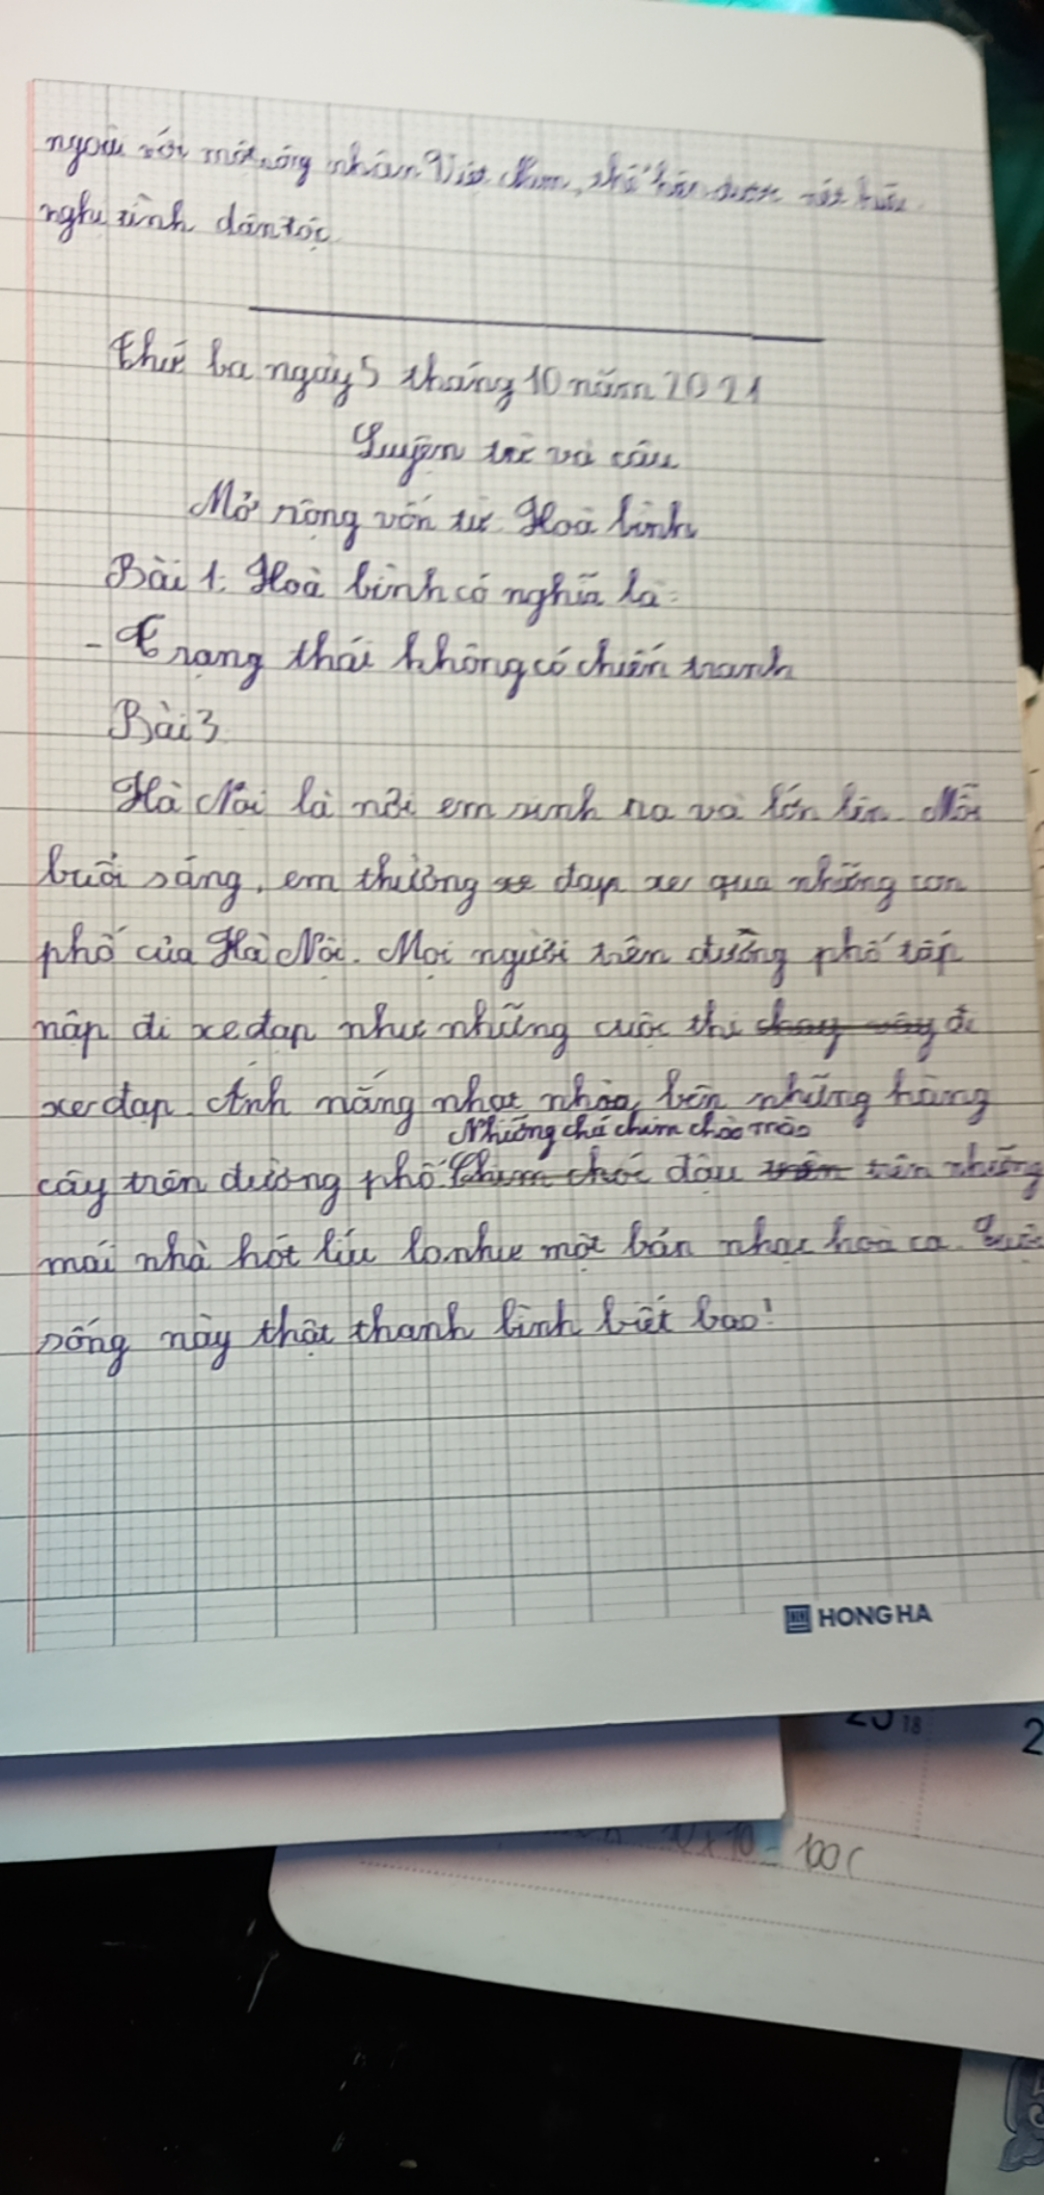 ngoài với một công nhân Việt Nam, thể hiện được tình hữu
nghị tình dân tộc
Thứ ba ngày 5 tháng 10 năm 2021
Luyện từ và câu
Mở rộng vốn từ Hoà bình
Bài 1: Hoà bình có nghĩa là:
- Trạng thái không có chiến tranh
Bài 3
Hà Nội là nơi em sinh ra và lớn lên. Mỗi
buổi sáng, em thường xe đạp xe qua những con
phố của Hà Nội. Mọi người trên đường phố tấp
nập đi xe đạp như những cuộc thi chạy vây đi
xe đạp. Ánh nắng nhạt nhòa bên những hàng
Những chú chim chào mào
cây trên đường phố. Chim chóc đậu trên trên những
mái nhà hót líu lo như một bản nhạc hoà ca. Cuộc
sống này thật thanh bình biết bao!
HONG HA
18
2
10 = 100(